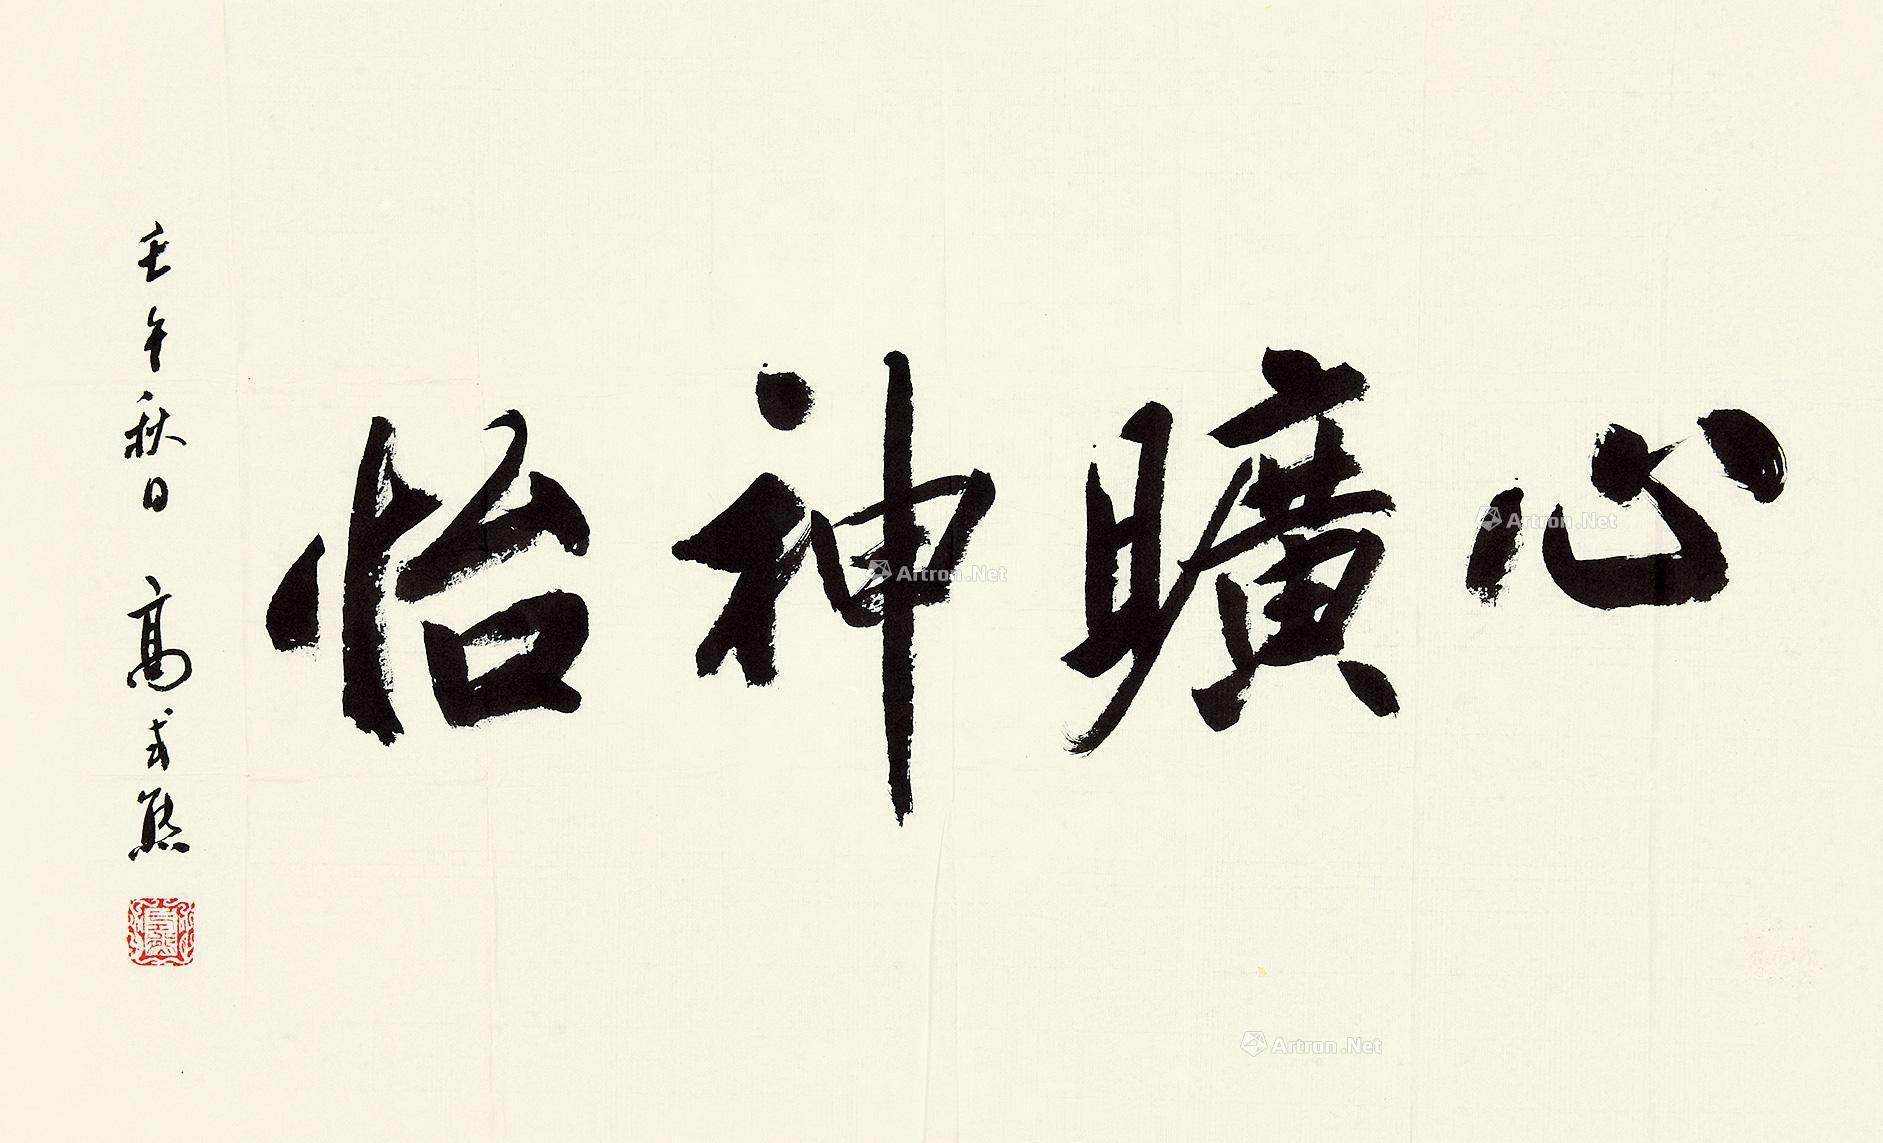 心曠神怡
壬午秋日 高式熊
Artron.Net
Artron.Net
Artron.Net